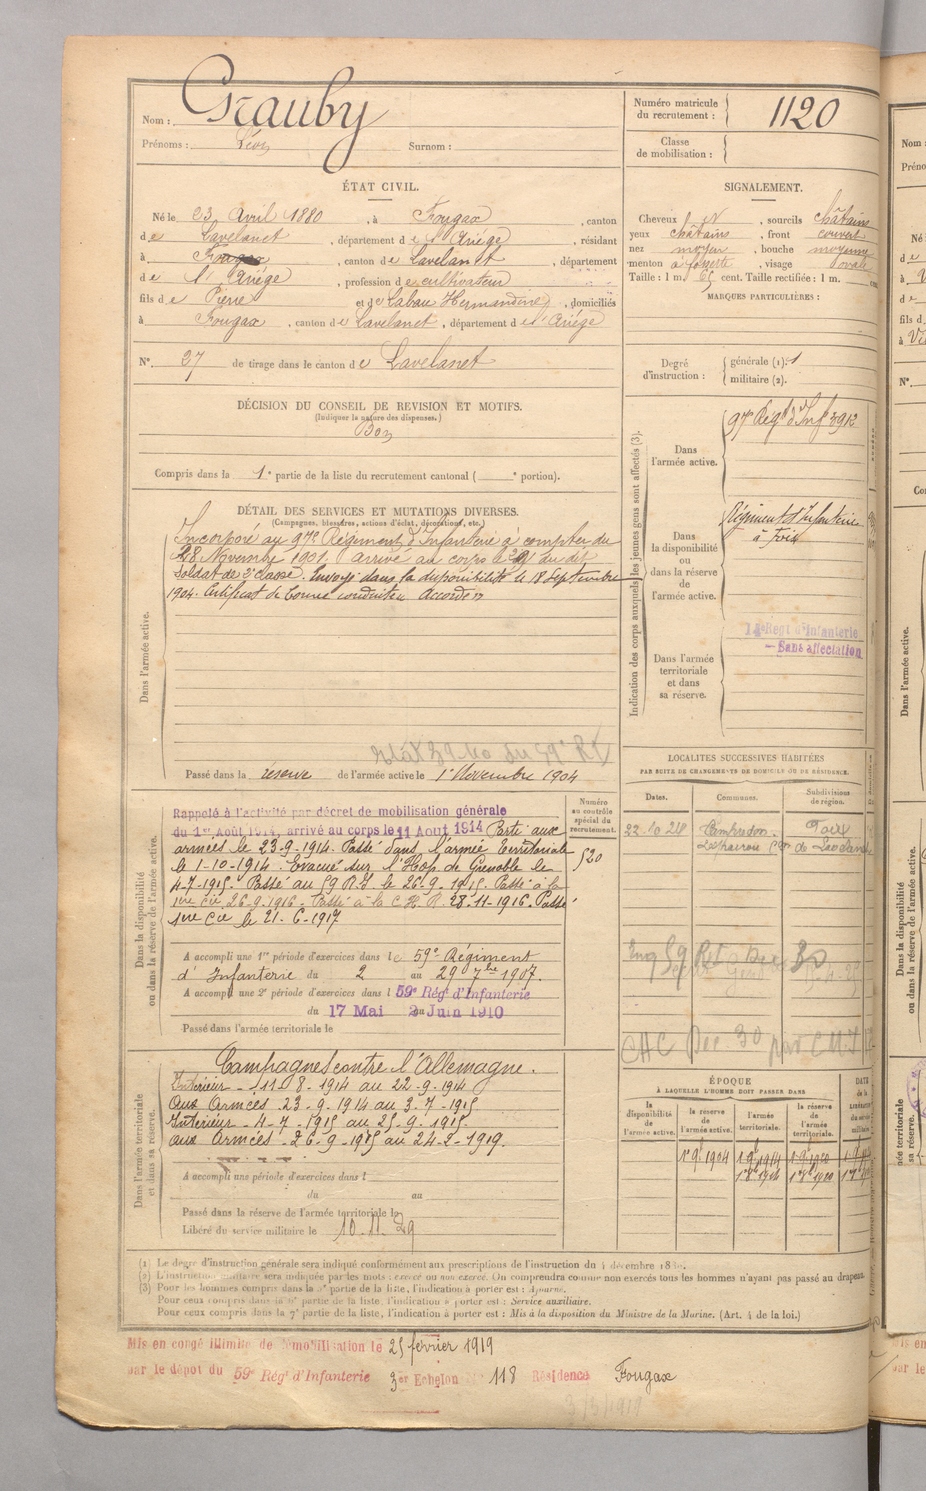 Nom : Grauby
Prénoms : Léon Surnom :
Numéro matricule du recrutement : 1120
Classe de mobilisation :
ÉTAT CIVIL.
Né le 23 Avril 1880, à Fougax, canton
de Lavelanet, département de l'Ariège, résidant
à Fougax, canton de Lavelanet, département
de l'Ariège, profession de cultivateur
fils de Pierre et de Labau Hermandine, domiciliés
à Fougax, canton de Lavelanet, département de l'Ariège
N° 27 de tirage dans le canton de Lavelanet
SIGNALEMENT.
Cheveux et, sourcils châtains
yeux châtains, front couvert
nez moyen, bouche moyenne
menton à fossette, visage ovale
Taille : 1 m. 65 cent. Taille rectifiée : 1 m. cent.
MARQUES PARTICULIÈRES :
Degré d'instruction : générale (1). 1
militaire (2).
DÉCISION DU CONSEIL DE REVISION ET MOTIFS.
(Indiquer la nature des dispenses.)
Bon
Compris dans la 1e partie de la liste du recrutement cantonal ( e portion).
DÉTAIL DES SERVICES ET MUTATIONS DIVERSES.
(Campagnes, blessures, actions d'éclat, décorations, etc.)
Dans l'armée active.
Incorporé au 97e Régiment d'Infanterie à compter du
28 Novembre 1901. Arrivé au corps le dit
Soldat de 2e classe. Envoyé dans la disponibilité le 18 Septembre
1904. Certificat de bonne conduite Accordé
du 59e RI
Passé dans la réserve de l'armée active le 1er Novembre 1904
Indication des corps auxquels les jeunes gens sont affectés (3).
Dans l'armée active.
97e Régt d'Inf 3912
Dans la disponibilité ou dans la réserve de l'armée active.
Régiment d'Infanterie
à Foix
Dans l'armée territoriale et dans sa réserve.
14e Régt d'Infanterie
— Sans affectation
LOCALITÉS SUCCESSIVES HABITÉES
PAR SUITE DE CHANGEMENTS DE DOMICILE OU DE RÉSIDENCE.
Dates. Communes. Subdivisions de région.
22.10.24 Foix
Dans la disponibilité ou dans la réserve de l'armée active.
Numéro au contrôle spécial du recrutement.
520
Rappelé à l'activité par décret de mobilisation générale
du 1er Août 1914, arrivé au corps le 11 Aout 1914 Parti aux
armées le 23-9-1914. Passé dans l'armée Territoriale
le 1-10-1914. Évacué sur l'Hop. de Grenoble le
4-7-1915. Passé au 59 R.I. le 26-9-1915. Passé à la
1ère Cie 26-9-1916. Passé à la C.H.R. 28-11-1916. Passé
1ère Cie le 21-6-1917
A accompli une 1re période d'exercices dans le 59e Régiment
d'Infanterie du 2 au 29 7bre 1907.
A accompli une 2e période d'exercices dans l 59e Rég. d'Infanterie
du 17 Mai au 2 Juin 1910
Passé dans l'armée territoriale le
Dans l'armée territoriale et dans sa réserve.
Campagnes contre l'Allemagne.
Intérieur - 11-8-1914 au 22-9-1914
Aux Armées 23-9-1914 au 3-7-1915
Intérieur - 4-7-1915 au 25-9-1915
aux Armées - 26-9-1915 au 24-2-1919.
A accompli une période d'exercices dans l
du au
Passé dans la réserve de l'armée territoriale le
Libéré du service militaire le 10.11.29
ÉPOQUE
À LAQUELLE L'HOMME DOIT PASSER DANS
la disponibilité de l'armée active. la réserve de l'armée active. l'armée territoriale. la réserve de l'armée territoriale. DATE
1 9e 1904 1 9e 1914 1 9e 1920
1 8e 1914 1 8e 1920
(1) Le degré d'instruction générale sera indiqué conformément aux prescriptions de l'instruction du 4 décembre
(2) L'instruction militaire sera indiquée par les mots : exercé ou non exercé. On comprendra comme non exercés tous les hommes n'ayant pas passé au drapeau
(3) Pour les hommes compris dans la partie de la liste, l'indication à porter est : Ajourné.
Pour ceux compris dans la partie de la liste, l'indication à porter est : Service auxiliaire.
Pour ceux compris dans la 7e partie de la liste, l'indication à porter est : Mis à la disposition du Ministre de la Marine. (Art. 4 de la loi.)
Mis en congé illimité de démobilisation le 25 février 1919
par le dépôt du 59e Régt d'Infanterie 3er Echelon N° 118 Résidence Fougax